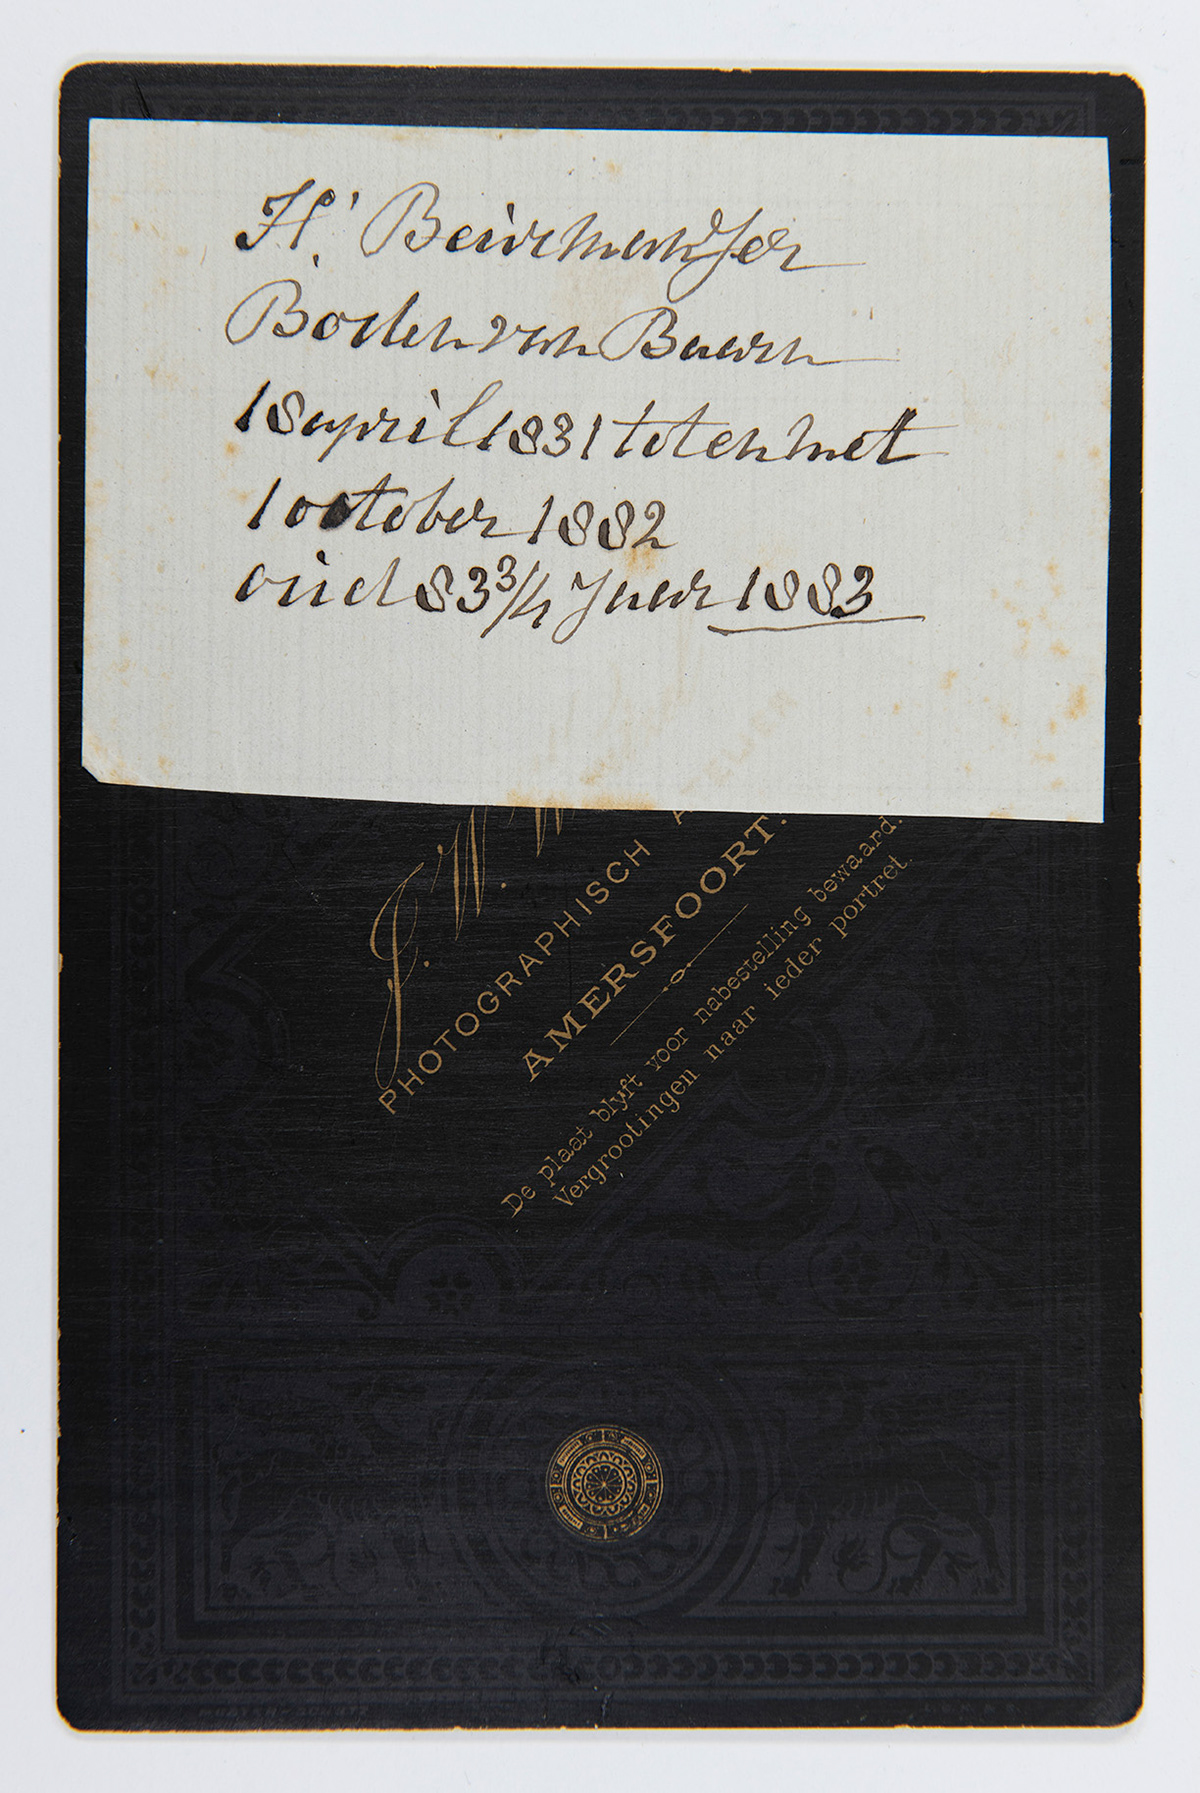 H. Beirmanser
Boden van Baarn
18 april 1831 tot en met
1 october 1882
oud 83 3/4 Jaar 1883
J. W. W
PHOTOGRAPHISCH A
AMERSFOORT.
De plaat blyft voor nabestelling bewaard.
Vergrootingen naar ieder portret.